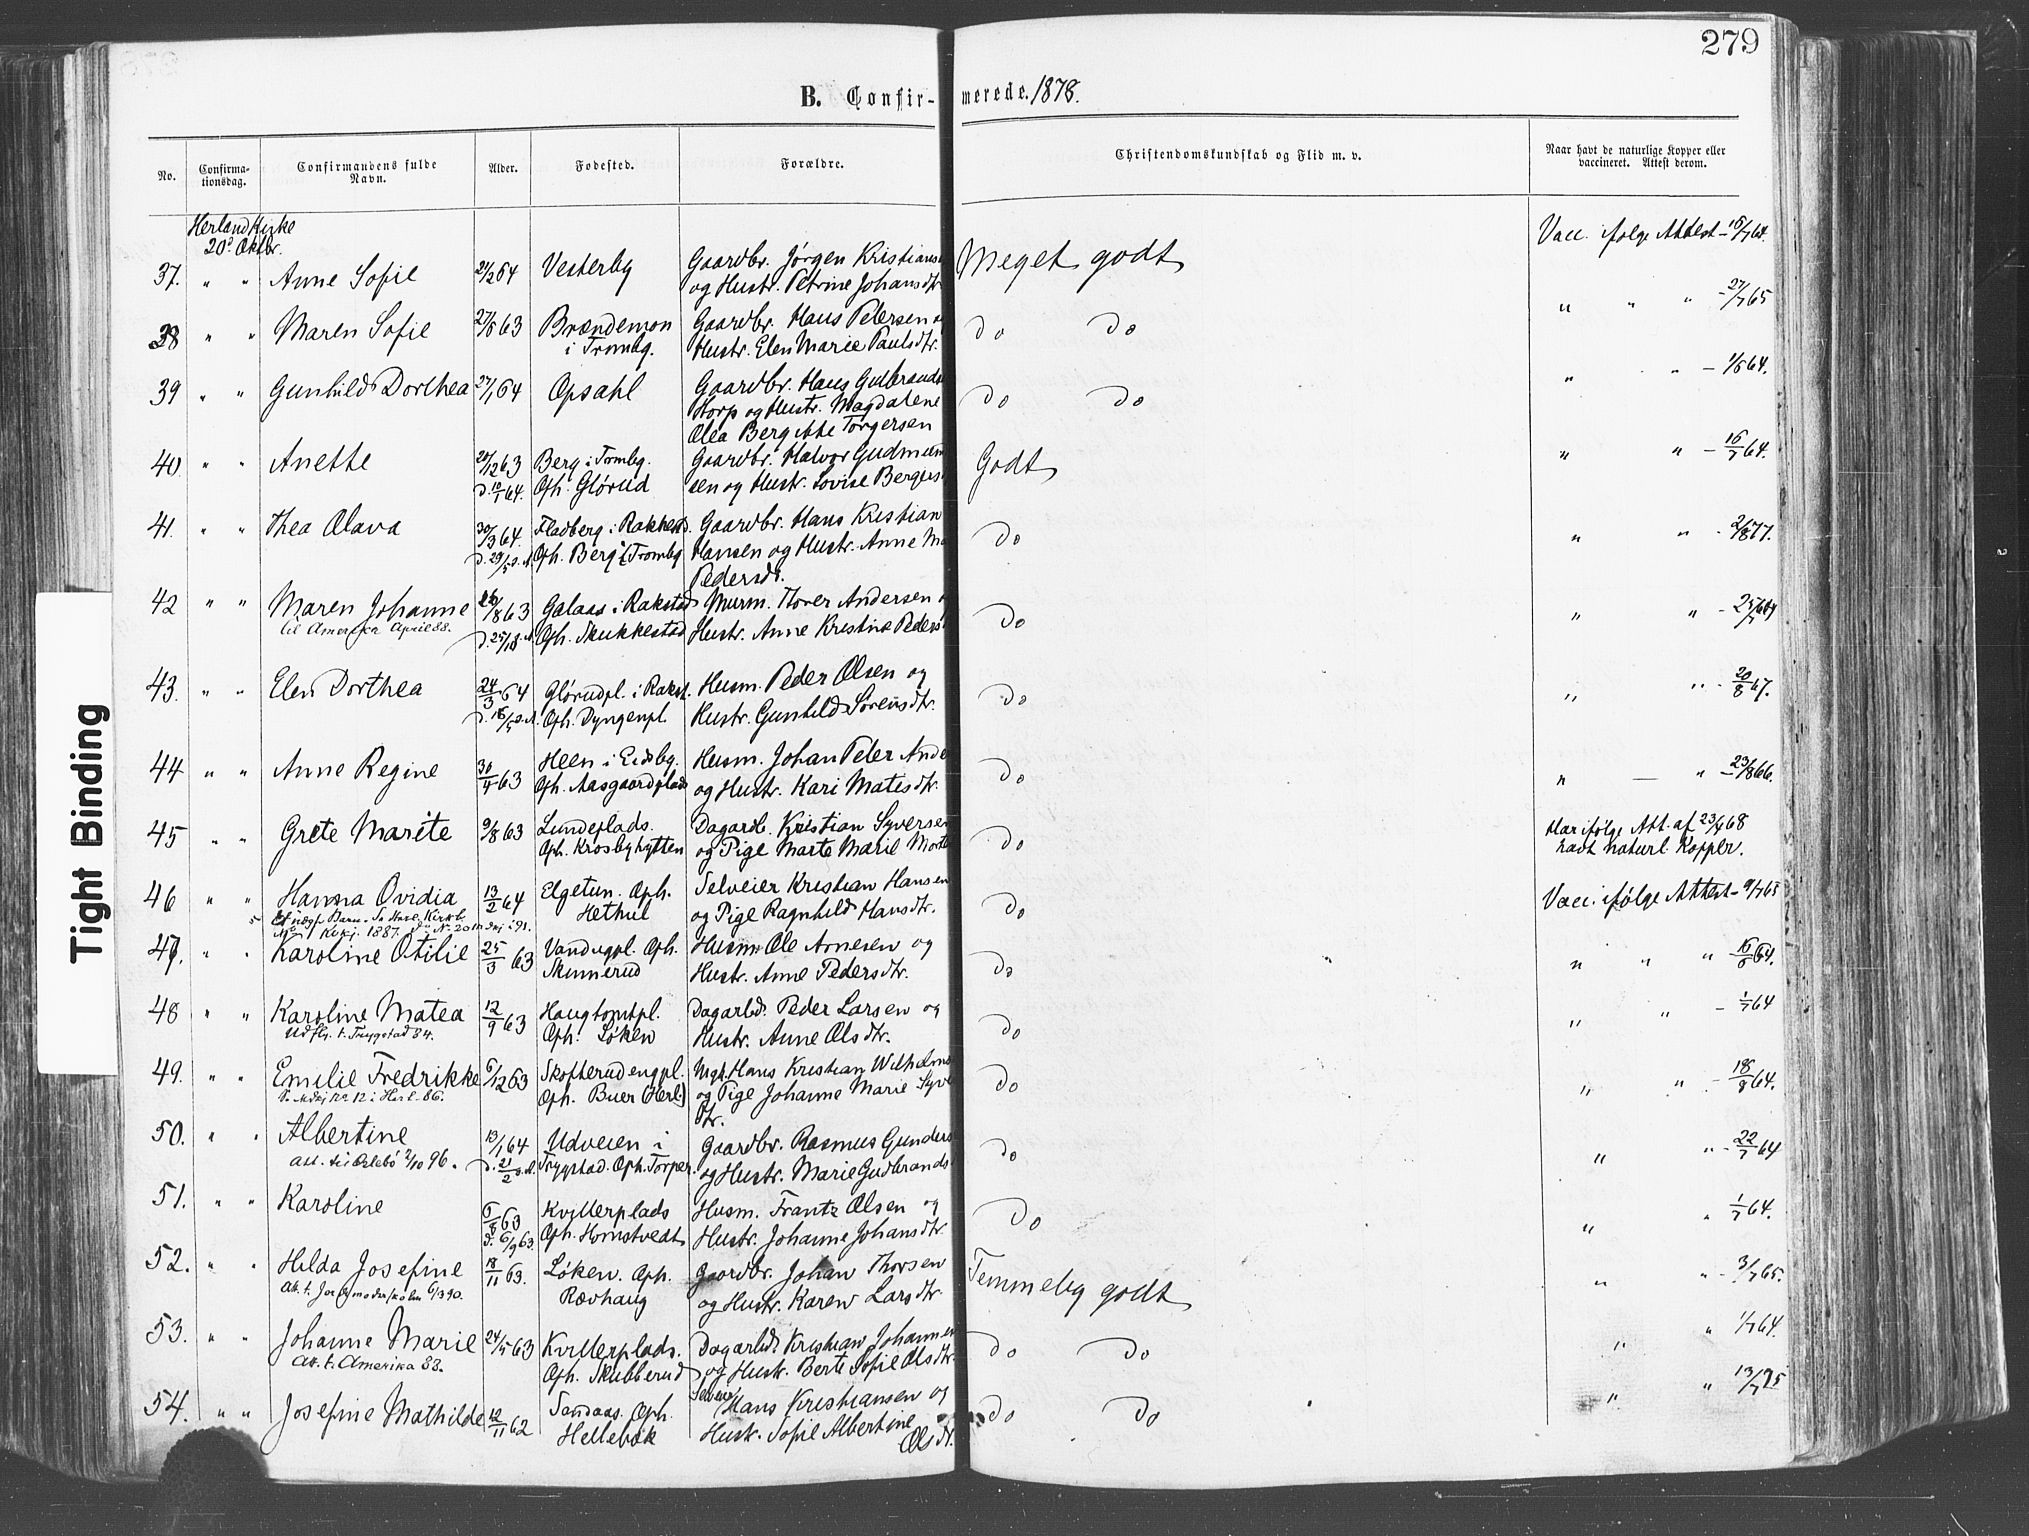 279
B. Confir- merede. 1878.
No. Confirma-tionsdag. Confirmandens fulde Navn. Alder. Fødested. Forældre. Christendomskundskab og Flid m. v. Naar havt de naturlige Kopper eller vaccineret. Attest derom.
Herland Kirke
20d Oktbr. Vacc. ifølge Attest - 15/7 64.
37. " " Anne Sofie 21/2 64 Vesterby Gaardbr. Jørgen Kristians Meget godt
og Hustr. Petrine Johansdtr
" " " - 27/7 65
38 " " Maren Sofie 27/5 63 Brændemon Gaardbr. Hans Petersen og do do
i Trømbg. Hustr. Elen Marie Paulsdtr.
" " - 1/5 64.
39 " " Gunhild Dorthea 27/1 64 Opsahl Gaardbr. Hans Gulbrands do do
Horp og Hustr. Magdalene
Olea Berg Torgersen
40 " " Anette 20/12 63 Berg i Trømbg. Gaardbr. Halvor Gudmund Godt " " - 16/7 64.
d. 10/1 64. Oph. Glørud sen og Hustr. Lovise Berger
41. " " Thea Olava 30/3 64. Fladberg i Rakkest. Gaardbr. Hans Kristian do " " - 2/8 77.
d. 29/5 s. A. Oph. Berg i Trømbg Hansen og Hustr. Anne Ma
Pedersdt.
42 " " Maren Johanne 16/8 63 Galaas i Rakstad Murm. Thover Andersen o do " " - 25/7 64
til Amerika April 88. d. 25/10 s. A. Oph. Skukkestad Hustr. Anne Kristine Peders
43. " " Elen Dorthea 24/3 64 Glørudpl. i Rakst. Husm. Peder Olsen og do " " - 20/8 67.
d. 16/5 s. A. Oph. Dyngenpl. Hustr. Gunhild Sørensdtr.
44 " " Anne Regine 30/4 63 Heen i Eidsbg. Husm. Johan Peter Ander do " — " - 23/8 66.
Oph. Aasgaardplads og Hustr. Kari Matisdtr.
45 " " Grete Marite 9/8 63 Lundeplads. Dagarb. Kristian Syversen do Har ifølge Att. af 23/4 68
Oph. Krosbyhytten og Pige Marte Marie Morte havt naturl. Kopper.
46 " " Hanna Ovidia 13/2 64 Elgetun. Oph. Selveier Kristian Hansen do Vacc. ifølge Attest - 9/7 65
Hethul og Pige Ragnhild Hansdtr.
47. " " Karoline Otilie 25/3 63 Vandugpl. Oph. Husm. Ole Arnesen og do " " " - 16/6 64.
Skinnerud Hustr. Anne Pedersdtr.
48 " " Karoline Matea 12/9 63 Haugtomtpl. Dagarbd. Peder Larsen og do " " - 1/7 64
Udfly. t. Trygstad 84. Oph. Løken Hustr. Anne Olsdtr.
49. " " Emilie Fredrikke 6/12 63 Skofterudengpl. Ungk. Hans Kristian Wilhelms do " " - 18/8 64.
S. Udfl. No 12 i Herl. 86. Oph. Buer (Herl.) og Pige Johanne Marie Syve
dtr.
50. " " Albertine 13/1 64 Udveien i Gaardbr. Rasmus Gunders do " " - 22/7 64
Att. til 2/10 96. d. 21/2 s. A. Trygstad. Oph. Torper. og Hustr. Marie Gudbrands
51. " " Karoline 6/8 63 Kvillerplads Husm. Frantz Olsen og do " " 1/7 64.
d. 6/9 63. Oph. Homstvedt Hustr. Johanne Johansdtr.
52. " " Hilda Josefine 18/11 63. Løken. Oph. Gaardbr. Johan Thorsen Temmelig godt " " - 3/7 65.
Att. t. Jordemoderskolen 6/3 90. Rævhaug og Hustr. Karen Larsdtr.
53. " " Johanne Marie 24/5 63 Kvillerplads. Dagarbd. Kristian Johannen do do " " 1/7 64.
Att. t. Amerika 83. Oph. Skibberud og Hustr. Berte Sofie Olsdtr.
54. " " Josefine Mathilde 12/11 62 Sandaas. Oph. Selveier Hans Kristiansen og do do " " 13/7
Hellebæk Hustr. Sofie Albertine
Olsdt.
Tight Binding